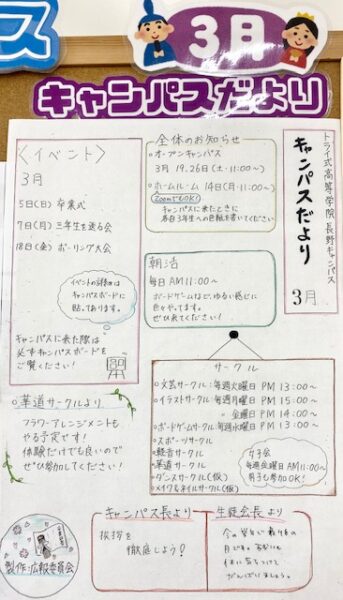 ス
3月
キャンパスだより
トライ式高等学院 長野キャンパス
キャンパスだより
3月
全体のお知らせ
・オープンキャンパス
3月 19.26日(土・11:00~)
・ホームルーム 14日(月・11:00~)
ZoomでもOK!
キャンパスに来たときに
各自3年生への色紙を書いてください
<イベント>
3月
5日(日) 卒業式
7日(月) 三年生を送る会
18日(金) ボーリング大会
イベントの詳細は
キャンパスボードに
貼ってあります。
キャンパスに来た際は
必ずキャンパスボードを
ご覧ください!
朝活
毎日 AM 11:00~
ボードゲームなどゆるい感じに
色々やってます。
ぜひ来てください!
サークル
・文芸サークル:毎週火曜日 PM 13:00~
・イラストサークル:毎週月曜日 PM 15:00~
金曜日 PM 14:00~
・ボードゲームサークル:毎週水曜日 PM 13:00~
・スポーツサークル
・軽音サークル
・華道サークル
・ダンスサークル(仮)
・メイク&ネイルサークル(仮)
女子会
毎週金曜日 AM11:00~
男子も参加OK!
・華道サークルより
フラワーアレンジメントも
やる予定です!
体験だけでも良いので
ぜひ参加してください!
製作:広報委員会
キャンパス長より
挨拶を
徹底しよう!
生徒会長より
がんばりましょう。